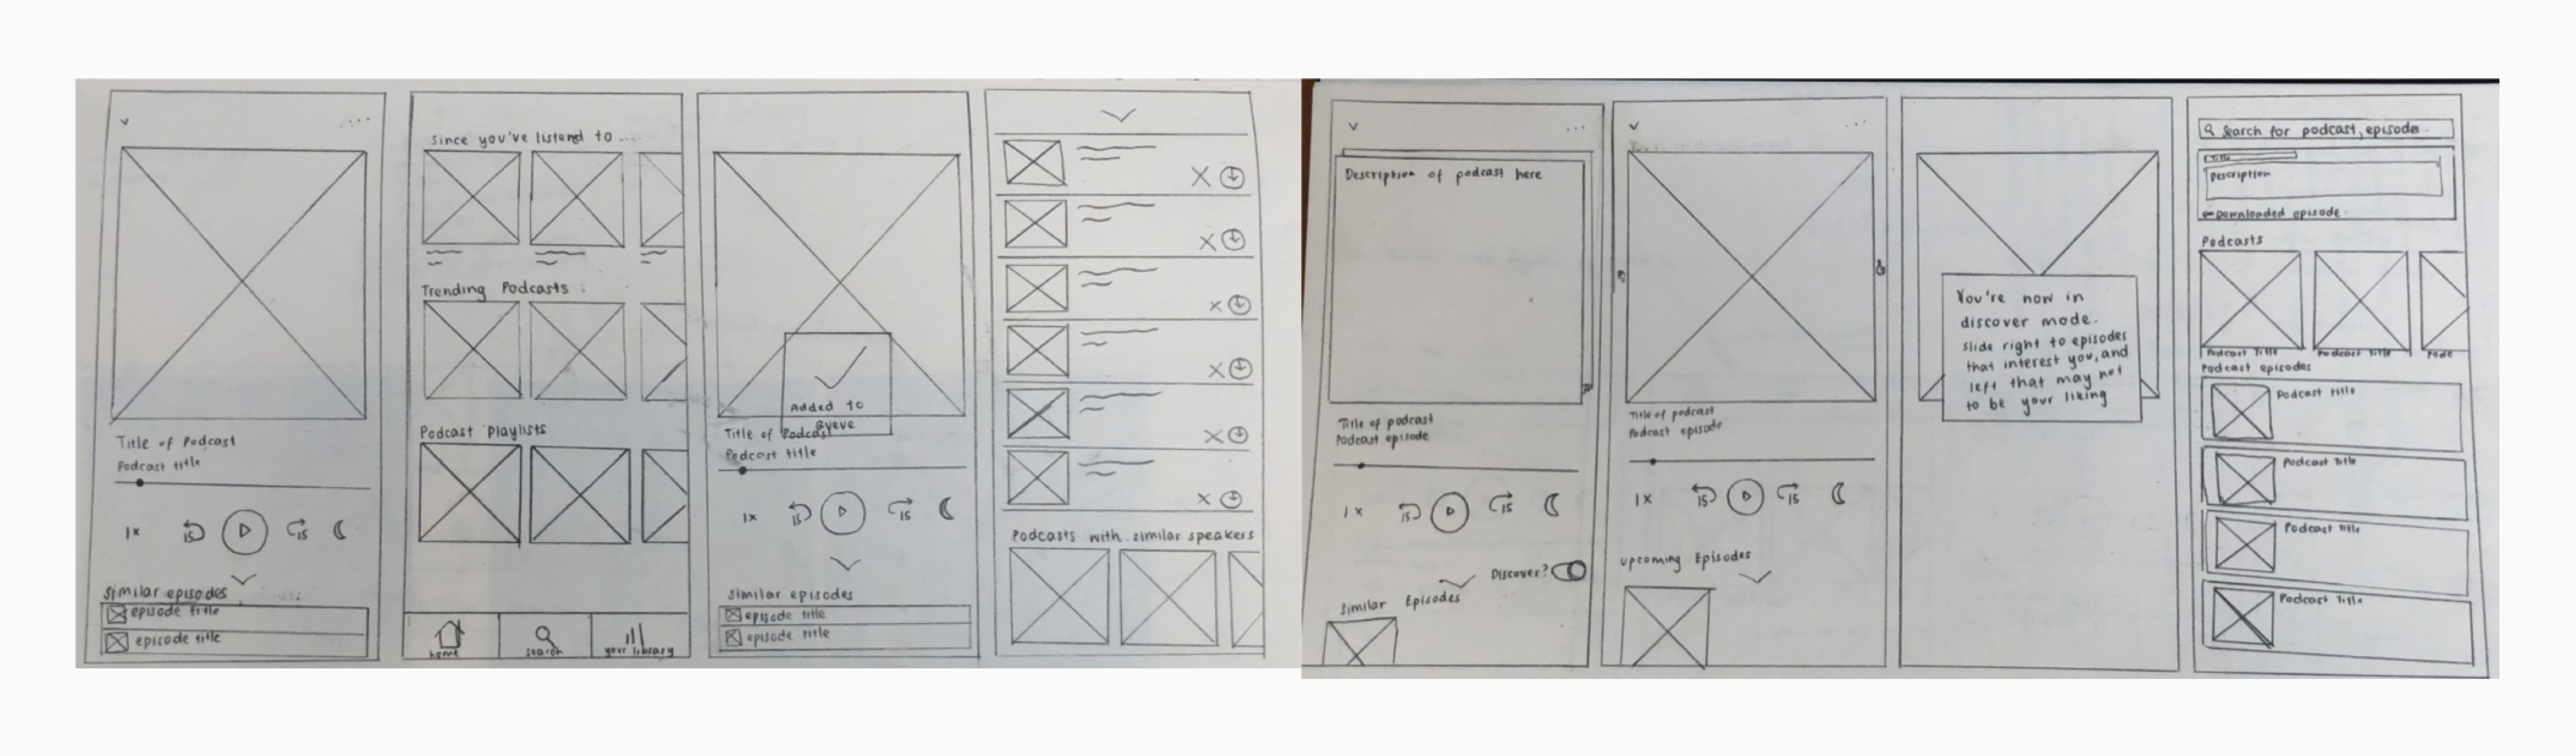 Title of Podcast
Podcast title
1x
15
15
Similar episodes
episode title
episode title
Since you've listend to ....
Trending Podcasts
Podcast playlists
home
search
your library
Added to
Queue
Title of Podcast
Podcast title
1x
15
15
similar episodes
episode title
episode title
Podcasts with similar speakers
Description of podcast here
Title of podcast
Podcast episode
1x
15
15
Discover?
Similar Episodes
Title of podcast
Podcast episode
1x
15
15
Upcoming Episodes
You're now in
discover mode.
slide right to episodes
that interest you, and
left that may not
to be your liking
Search for podcast, episodes
Title
Description
Downloaded episode
Podcasts
Podcast Title
Podcast Title
Podcast episodes
Podcast title
Podcast title
Podcast title
Podcast Title